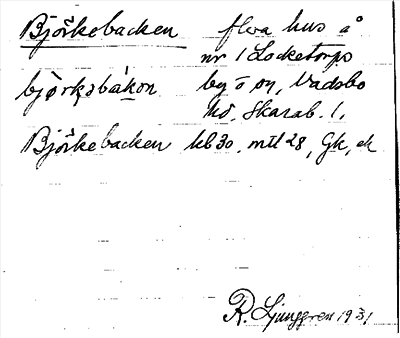 Björkebacken flera hus å
nr 1 Locketorps
by o on, Vadsbo
björkəbákon
hd, Skarab. l.
Björkebacken kb 30, mtl 28, Gk, ek
R. Ljunggren 1931